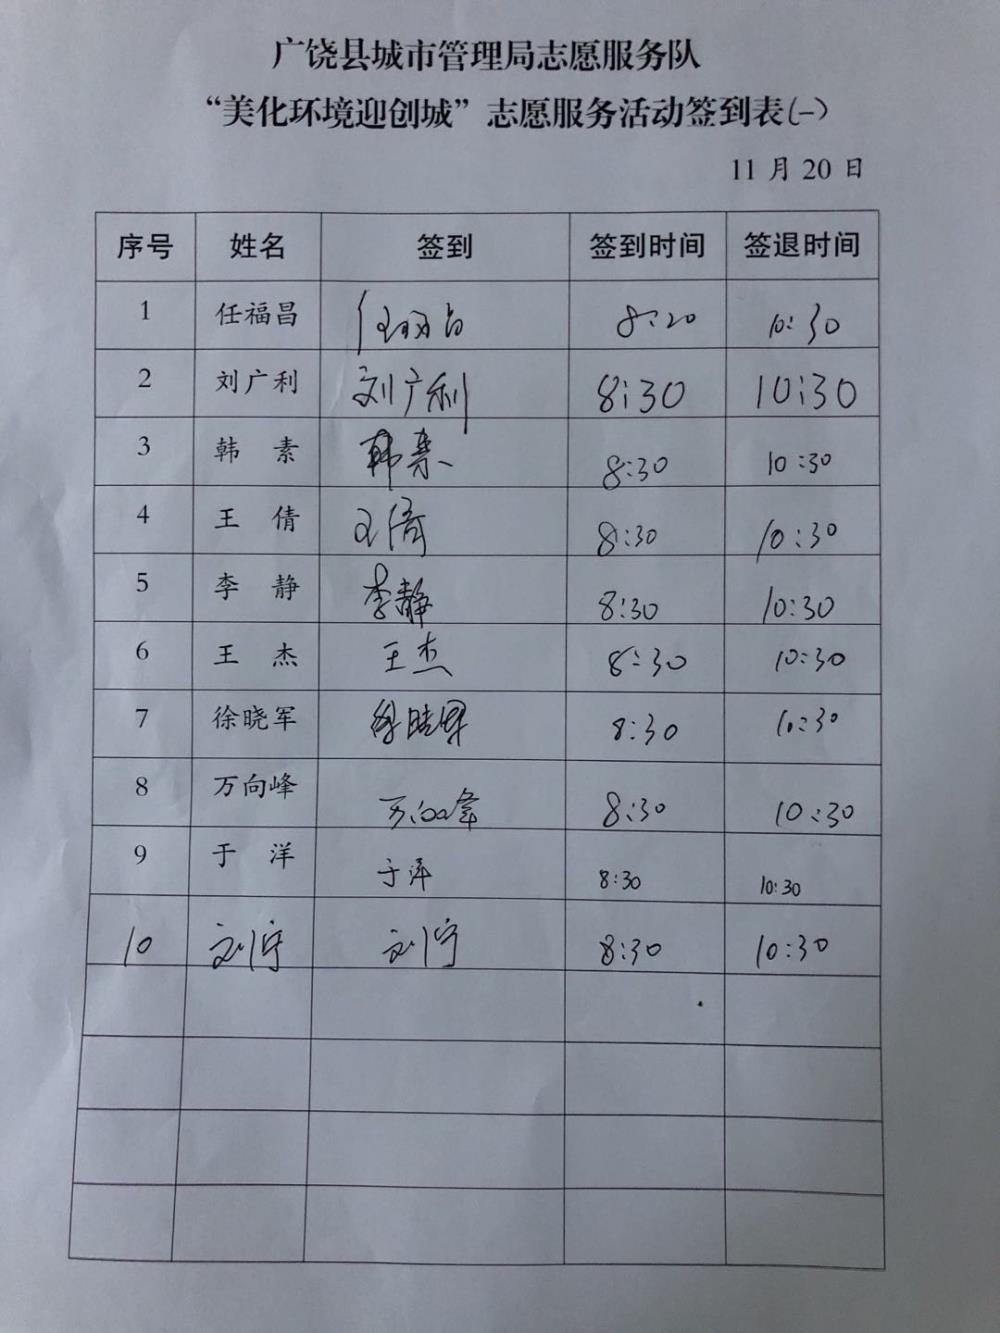 广饶县城市管理局志愿服务队
“美化环境迎创城”志愿服务活动签到表(一)
11 月 20 日
序号 姓名 签到 签到时间 签退时间
1 任福昌 任福昌 8:20 10:30
2 刘广利 刘广利 8:30 10:30
3 韩 素 韩素 8:30 10:30
4 王 倩 王倩 8:30 10:30
5 李 静 李静 8:30 10:30
6 王 杰 王杰 8:30 10:30
7 徐晓军 徐晓军 8:30 10:30
8 万向峰 万向峰 8:30 10:30
9 于 洋 于洋 8:30 10:30
10 刘宁 刘宁 8:30 10:30